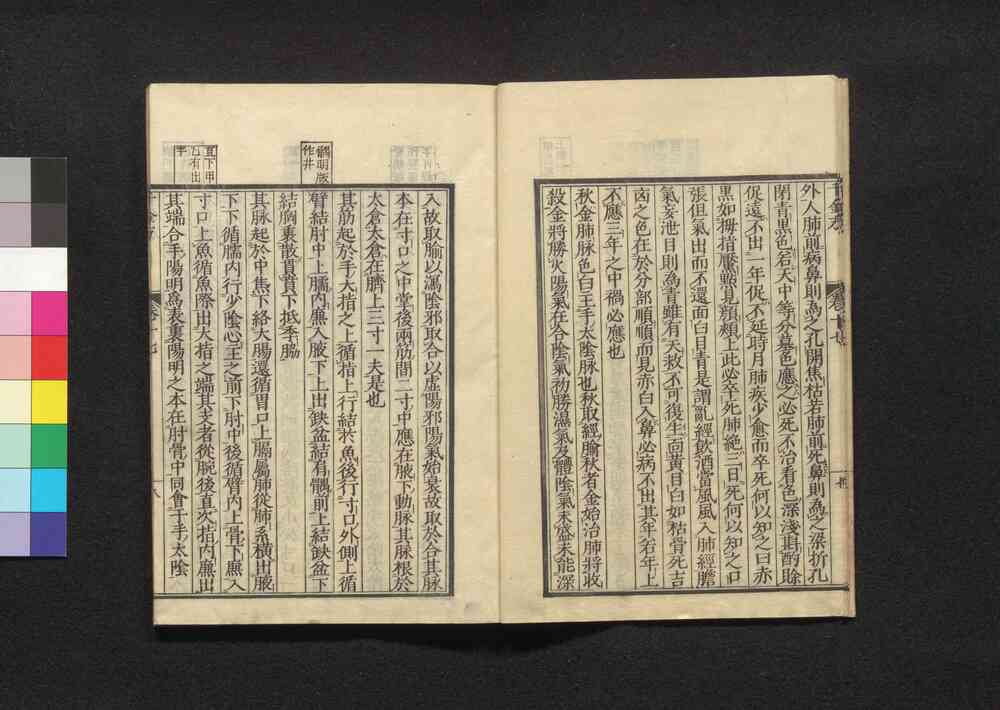 外人肺前病鼻則為之孔開焦枯若肺前死鼻則為之梁折孔
閉青黑色若天中等分墓色應之必死不治看色深淺斟酌賒
促遠不出一年促不延時月肺疾少愈而卒死何以知之曰赤
黑如拇指黶點見顏頰上此必卒死肺絕三日死何以知之口
張但氣出而不還面白目青是謂亂經飲酒當風風入肺經膽
氣妄泄目則為青雖有天救不可復生面黃目白如枯骨死吉
凶之色在於分部順順而見赤白入鼻必病不出其年若年上
不應三年之中禍必應也
秋金肺脉色白王手太陰脉也秋取經腧秋者金始治肺將收
殺金將勝火陽氣在合陰氣初勝濕氣及體陰氣未盛未能深
入故取腧以瀉陰邪取合以虛陽邪陽氣始衰故取於合其脉
本在寸口之中掌後兩筋間二寸中應在腋下動脉其脉根於
太倉太倉在臍上三寸一夫是也
其筋起於手大指之上循指上行結於魚後行寸口外側上循
臂結肘中上臑內廉入腋下上出缺盆結肩髃前上結缺盆下
結胸裏散貫賁下抵季肋
其脉起於中焦下絡大腸還循胃口上膈屬肺從肺系橫出腋
下下循臑內行少陰心主之前下肘中後循臂內上骨下廉入
寸口上魚循魚際出大指之端其支者從腕後直次指內廉出
其端合手陽明為表裏陽明之本在肘骨中同會于手太陰
明版
作井
直下甲
乙有出
字